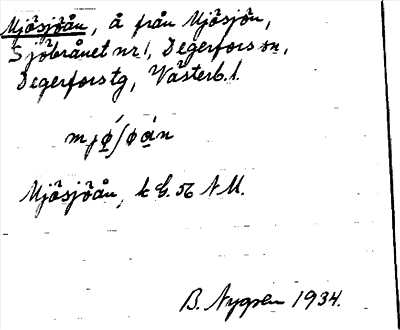 Mjösjöån, å från Mjösjön,
Sjöbrånet nr 1, Degerfors sn,
Degerfors tg, Västerb. l.
Mjösjöån, k G. 56 N.M.
B. Nygren 1934.